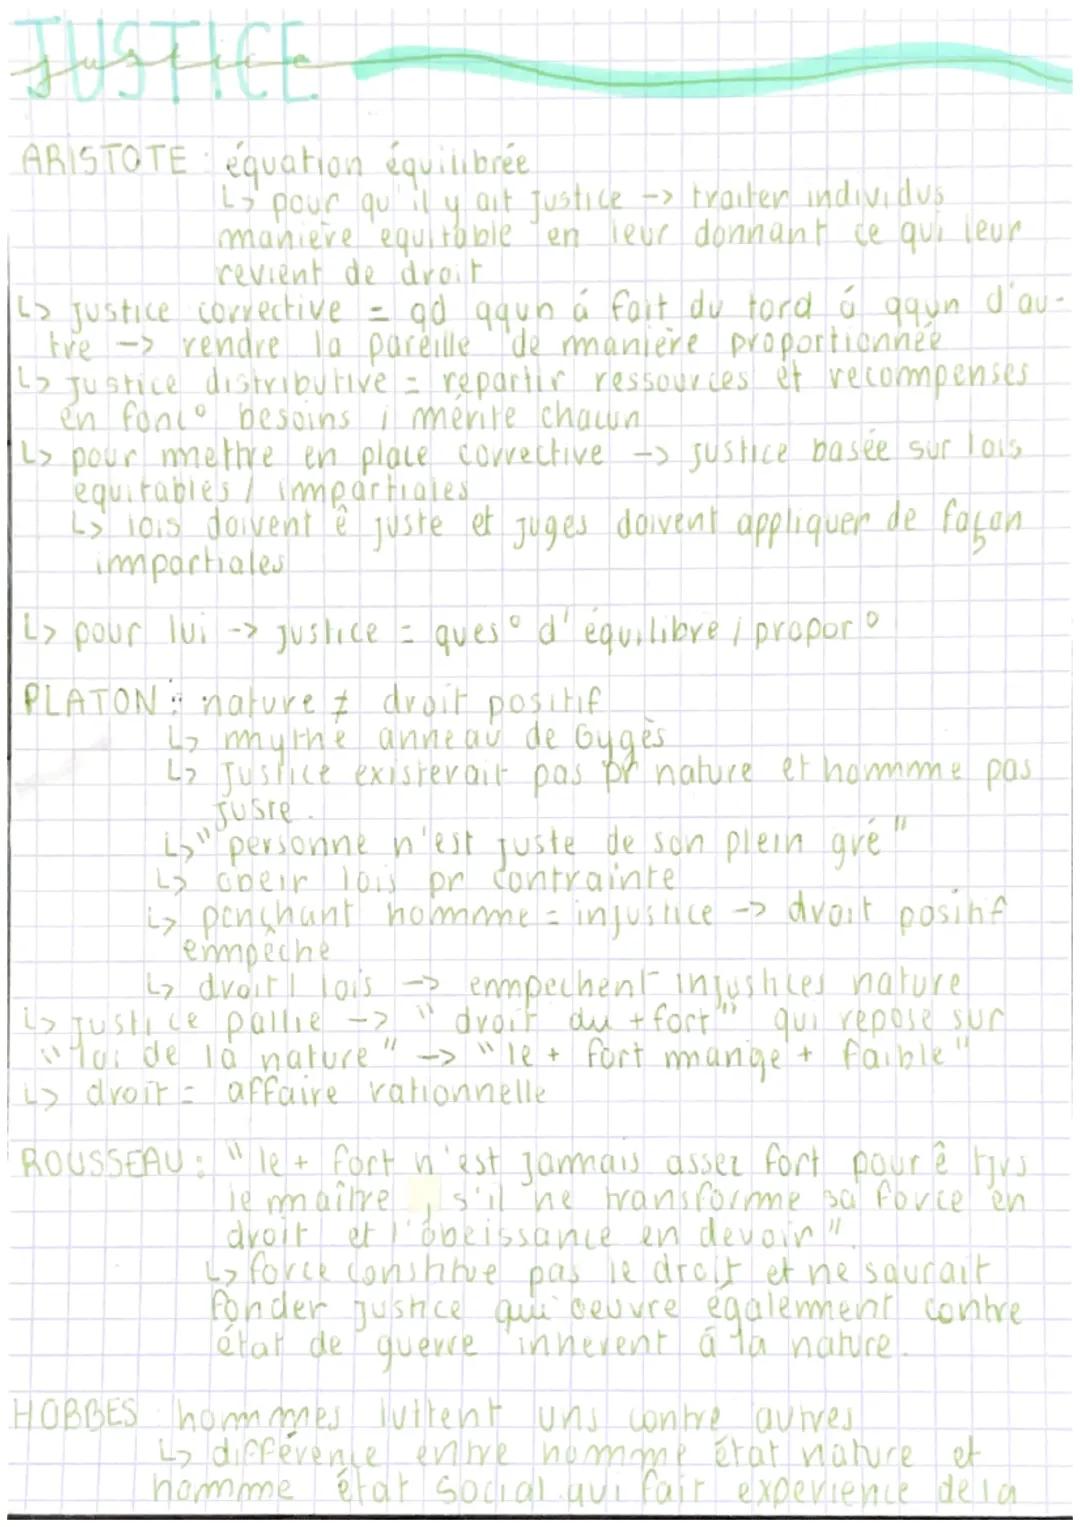 JUSTICE
justice
ARISTOTE : équation équilibrée
↳ pour qu'il y ait justice -> traiter individus
manière equitable en leur donnant ce qui leur
revient de droit
↳ justice corrective = qd qqun à fait du tord à qqun d'au-
tre -> rendre la pareille de manière proportionnée
↳ justice distributive = répartir ressources et recompenses
en fonc° besoins / mérite chacun
↳ pour mettre en place corrective -> justice basée sur lois
equitables / impartiales
↳ lois doivent ê juste et juges doivent appliquer de façon
impartiales
↳ pour lui -> justice = ques° d'équilibre / propor°
PLATON : nature ≠ droit positif
↳ mythe anneau de Gygès
↳ Justice existerait pas pr nature et homme pas
juste.
↳ "personne n'est juste de son plein gré"
↳ obeir lois pr contrainte
↳ penchant homme = injustice -> droit positif
empêche
↳ droit / lois -> empechent injustices nature
↳ justice pallie -> "droit du + fort" qui repose sur
"loi de la nature" -> "le + fort mange + faible"
↳ droit = affaire rationnelle
ROUSSEAU : "le + fort n'est jamais assez fort pour ê tjrs
le maître , s'il ne transforme sa force en
droit et l'obeissance en devoir".
↳ force constitue pas le droit et ne saurait
fonder justice qui oeuvre également contre
état de guerre inherent à la nature.
HOBBES : hommes luttent uns contre autres
↳ différence entre homme état nature et
homme état social qui fait experience de la